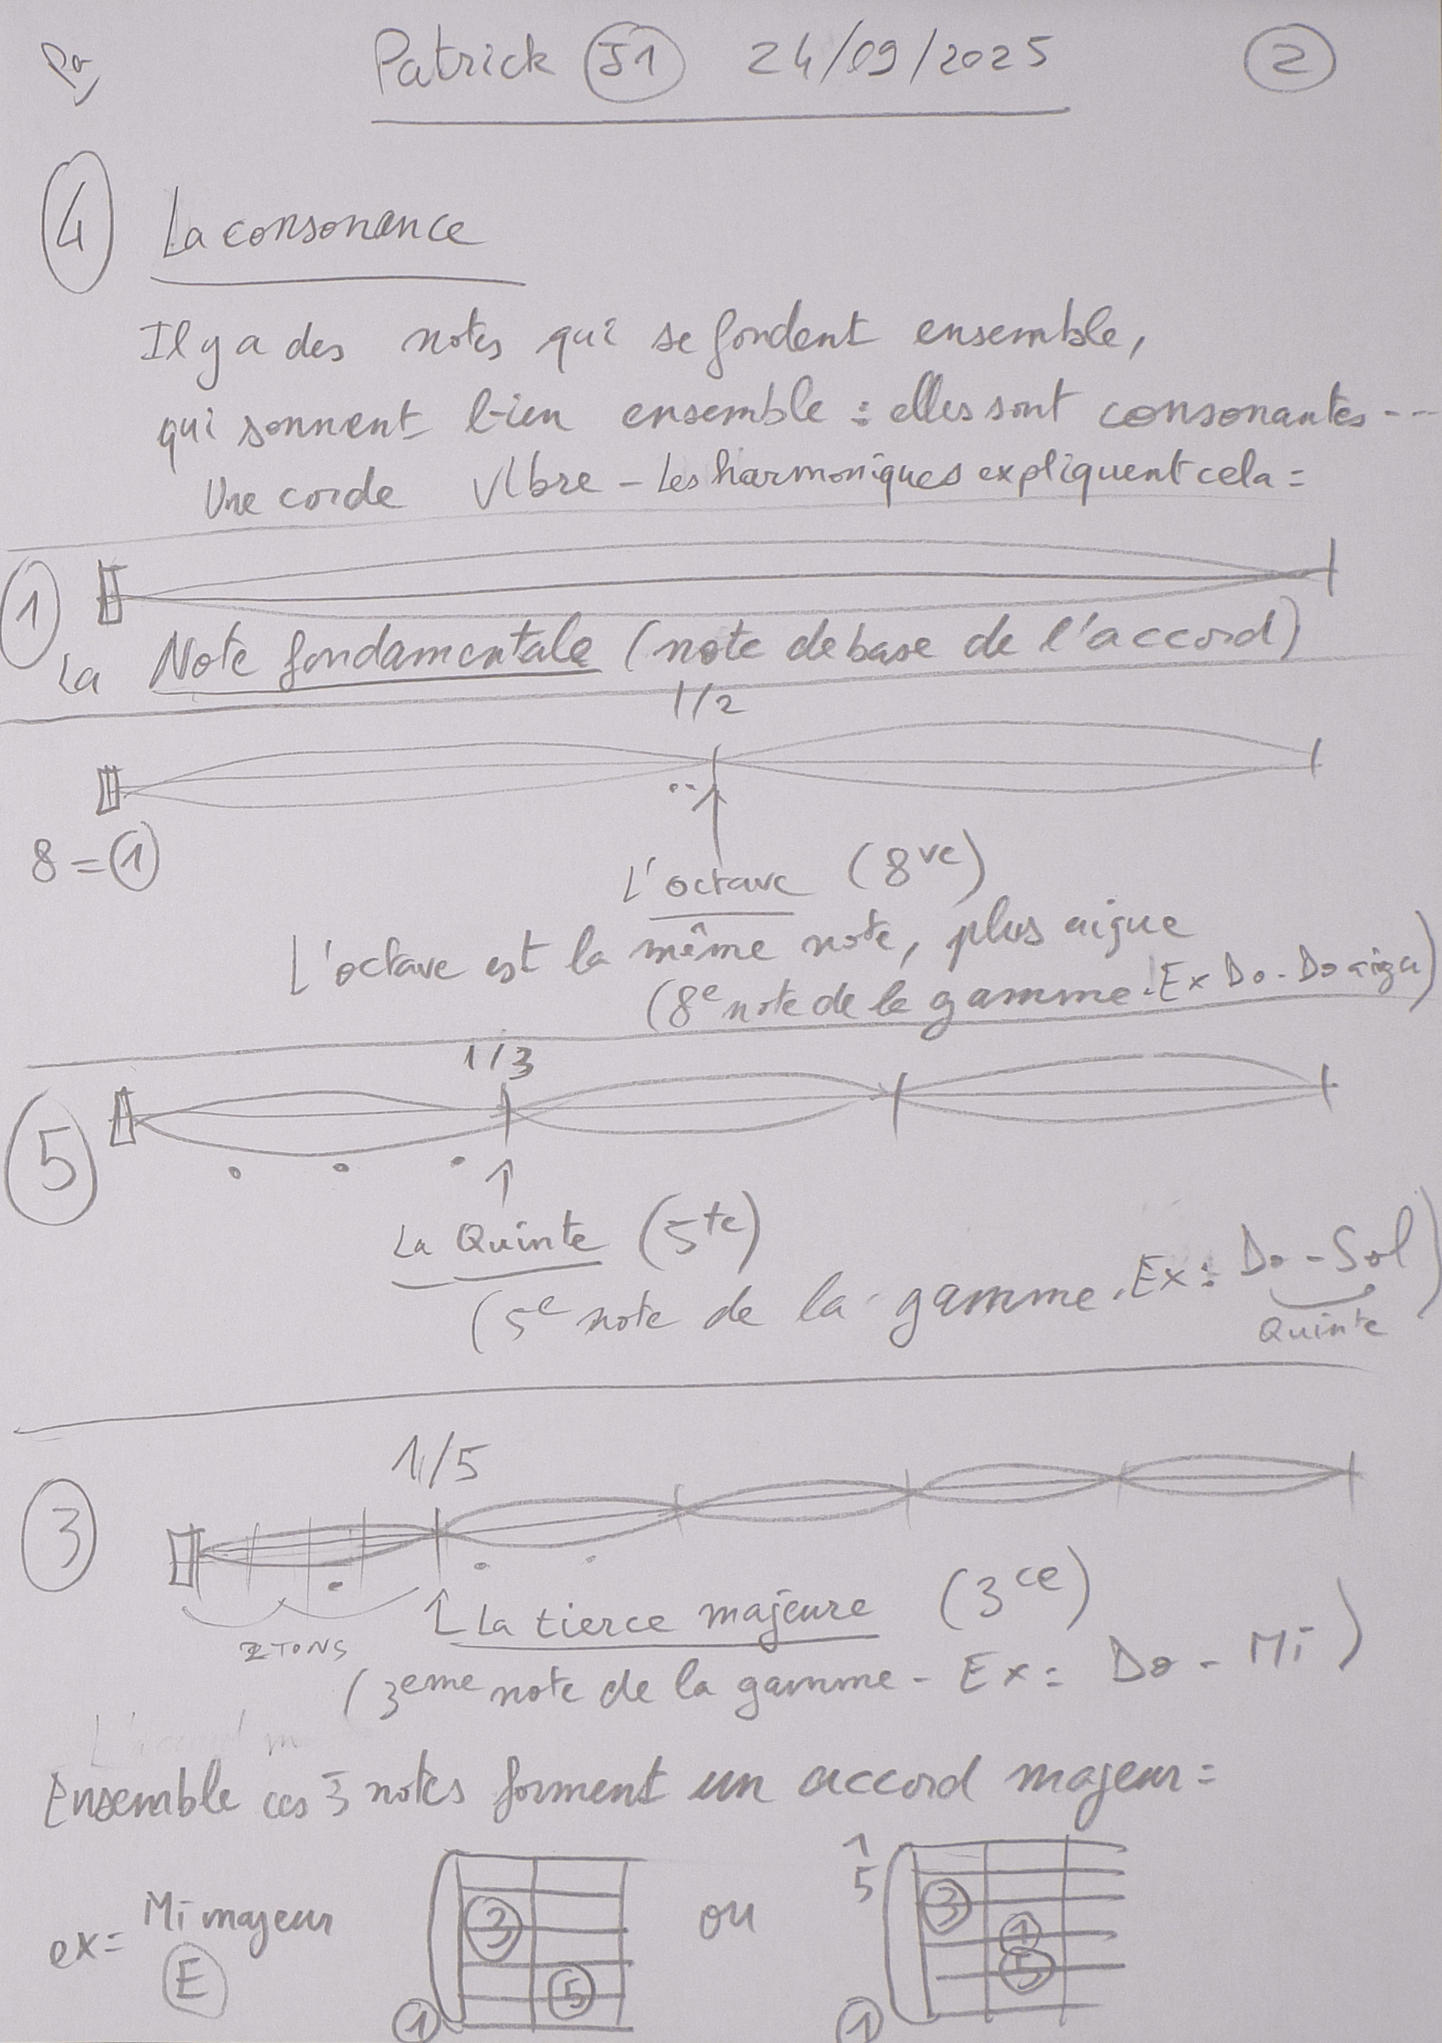 Pa
Patrick J1 24/09/2025 2
4 La consonance
Il y a des notes qui se fondent ensemble,
qui sonnent bien ensemble : elles sont consonantes ---
Une corde vibre - Les harmoniques expliquent cela =
1
La Note fondamentale (note de base de l'accord)
1/2
8 = 1
L'octave (8ve)
L'octave est la même note, plus aigue
(8e note de la gamme. Ex Do - Do aigu)
1/3
5
La Quinte (5te)
(5e note de la gamme. Ex: Do - Sol)
Quinte
1/5
3
La tierce majeure (3ce)
2 TONS
(3eme note de la gamme - Ex: Do - Mi)
L'accord m
Ensemble ces 3 notes forment un accord majeur =
ex= Mi majeur
E
3
5
1
ou
1
5
3
1
5
1